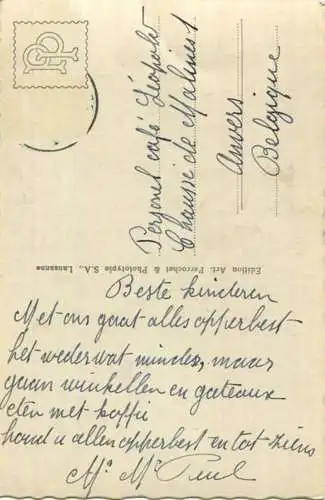 Personel café Léopold
Chaussée de Malines 1
Anvers
Belgique
Edition Art. Perrochet & Phototypie S.A., Lausanne
Beste kinderen
Met ons gaat alles opperbest
het weder wat minder, maar
gaan winkellen en gateaux
eten met koffie
houd u allen opperbest en tot ziens